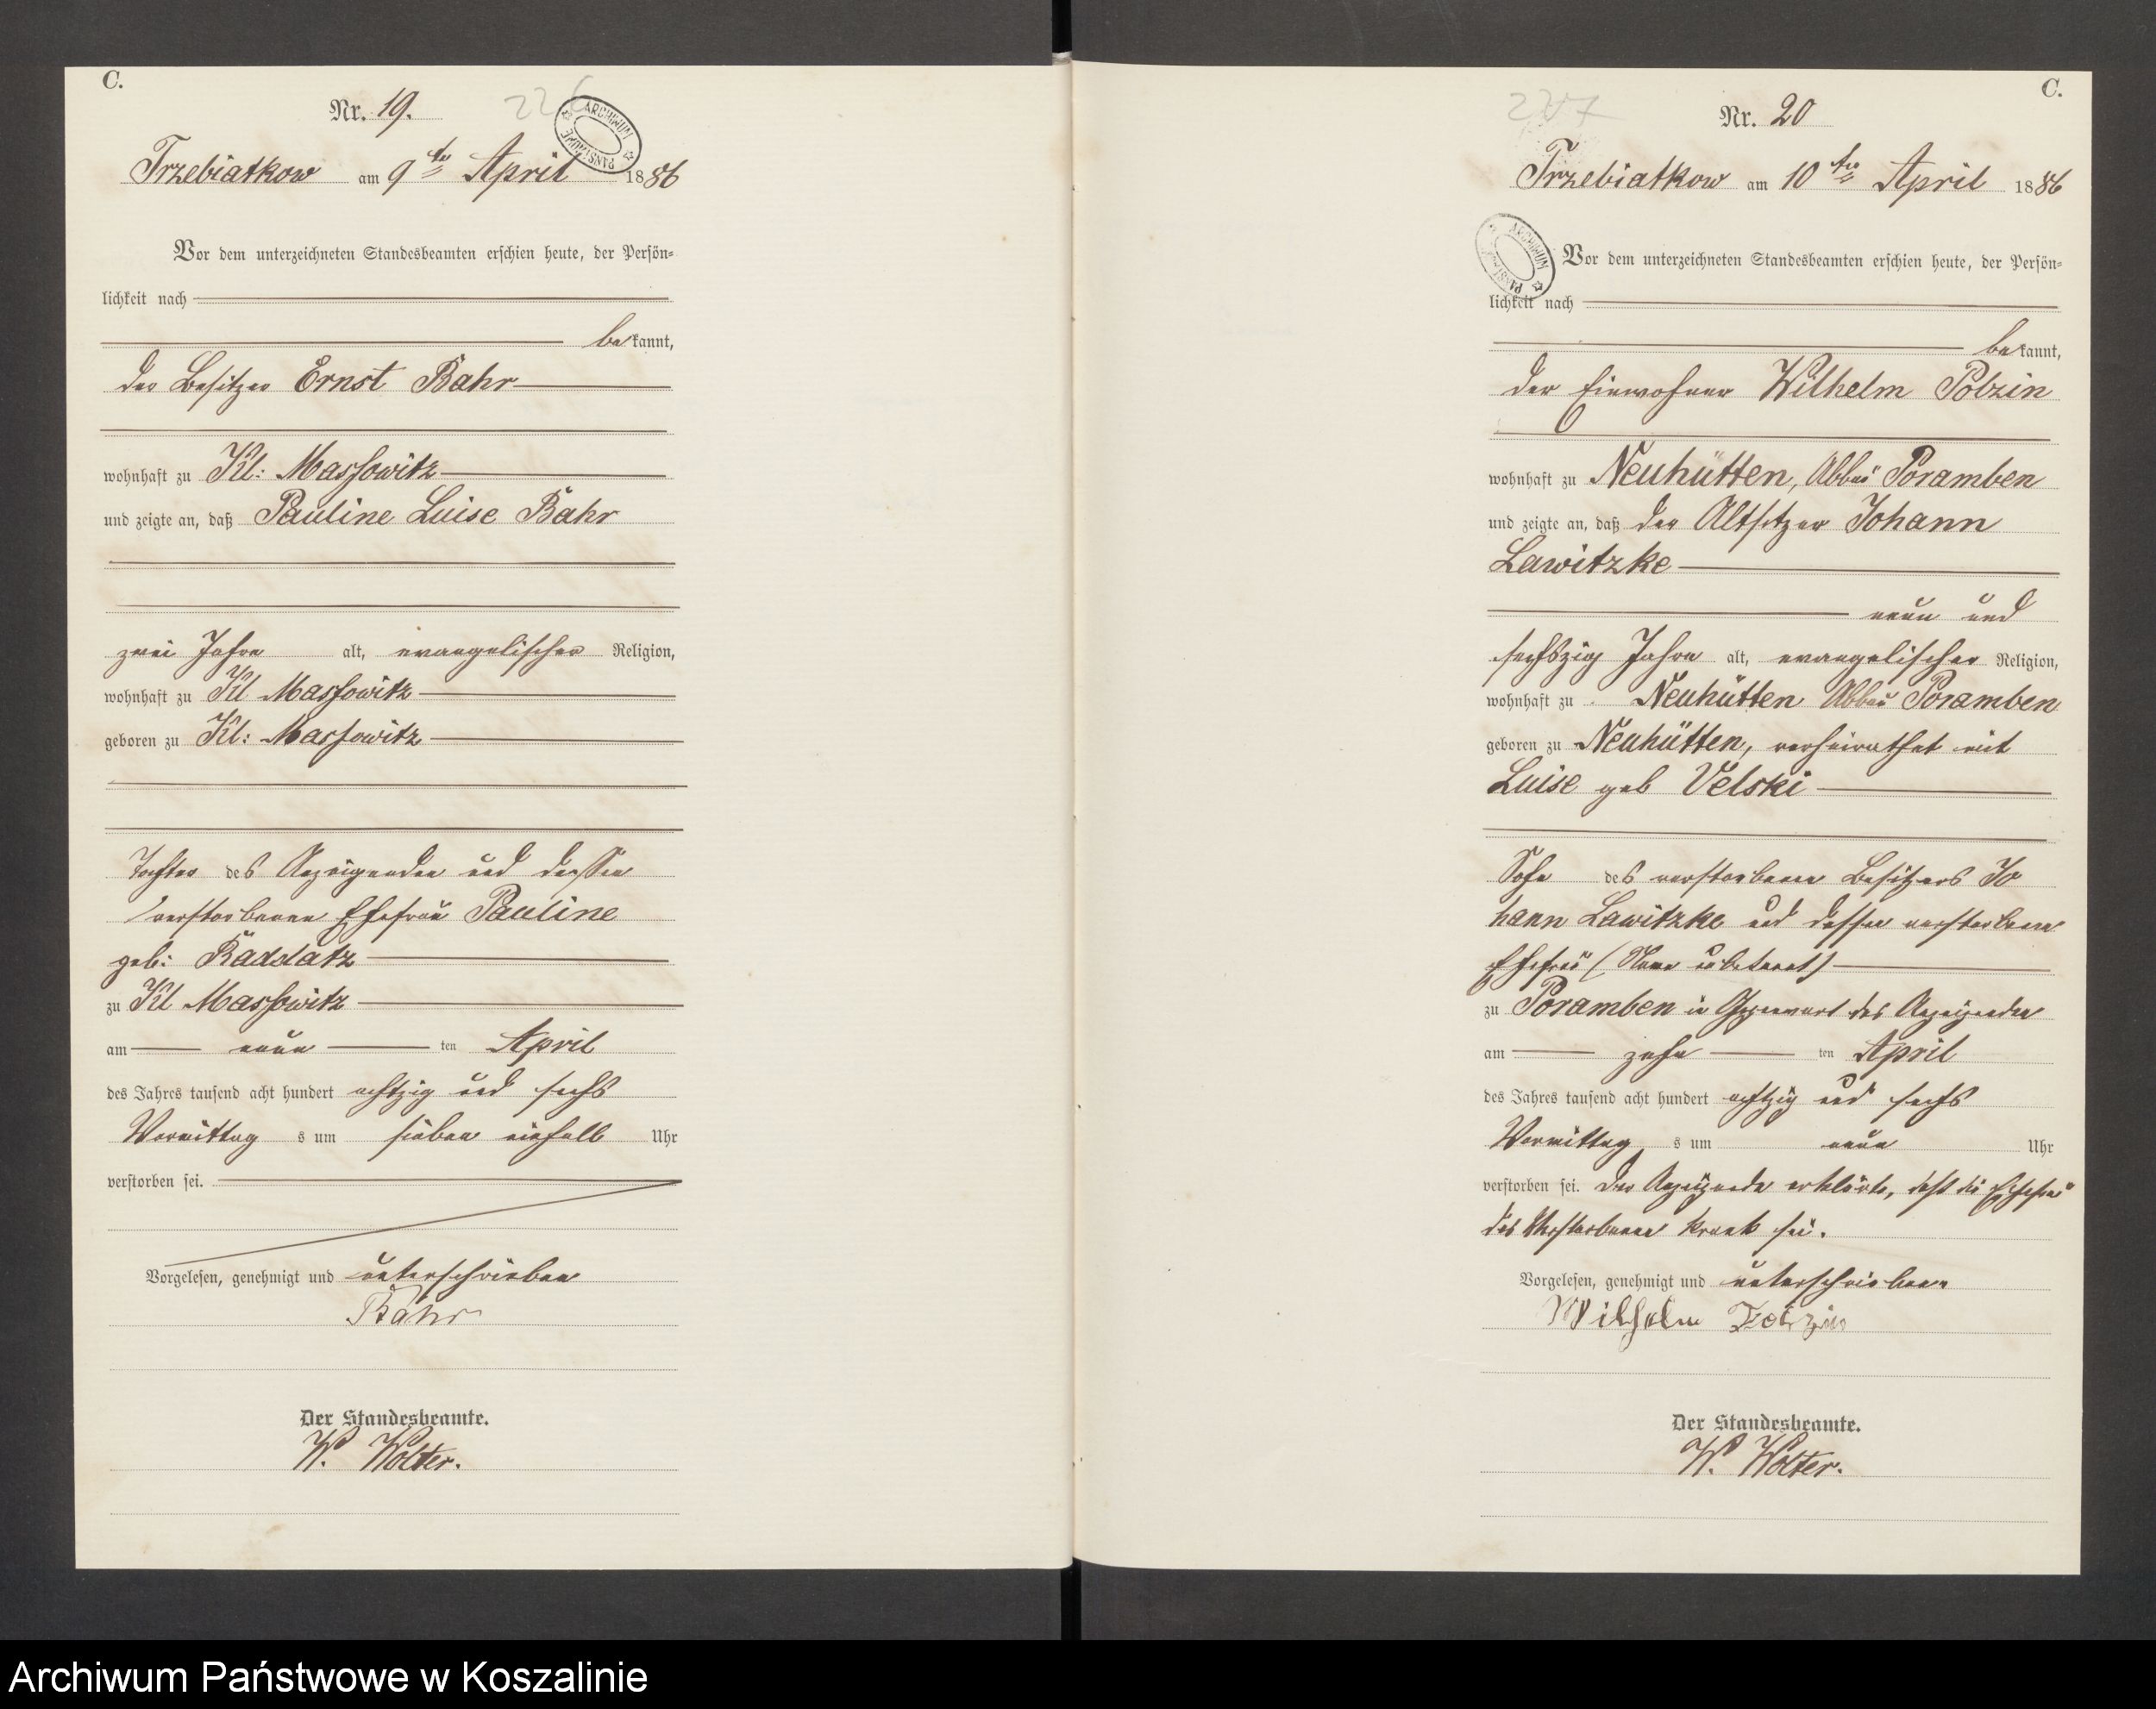 C.
Nr. 19.
226
ARCHIWUM PAŃSTWOWE
Trzebiatkow am 9ten April 1886
Vor dem unterzeichneten Standesbeamten erschien heute, der Persön-
lichkeit nach
bekannt,
der Besitzer Ernst Bahr
wohnhaft zu Kl: Massowitz
und zeigte an, daß Pauline Luise Bahr
zwei Jahre alt, evangelischer Religion,
wohnhaft zu Kl Massowitz
geboren zu Kl: Massowitz
Tochter des Anzeigenden und dessen
verstorbenen Ehefrau Pauline
geb: Raddatz
zu Kl Massowitz
am neun ten April
des Jahres tausend acht hundert achtzig und sechs
Vormittag s um sieben einhalb Uhr
verstorben sei.
Vorgelesen, genehmigt und unterschrieben
Bahr
Der Standesbeamte.
W. Wolter.
C.
Nr. 20
Trzebiatkow am 10ten April 1886
Vor dem unterzeichneten Standesbeamten erschien heute, der Persön-
lichkeit nach
bekannt,
der Einwohner Wilhelm Polzin
wohnhaft zu Neuhütten, Abbau Poramben
und zeigte an, daß der Altsitzer Johann
Lawitzke
neun und
sechszig Jahre alt, evangelischer Religion,
wohnhaft zu Neuhütten Abbau Poramben
geboren zu Neuhütten, verheirathet mit
Luise geb Velski
Sohn des verstorbenen Besitzers Jo
hann Lawitzke und dessen verstorbene
Ehefrau (Name unbekannt)
zu Poramben in Gegenwart des Anzeigenden
am zehn ten April
des Jahres tausend acht hundert achtzig und sechs
Vormittag s um neun Uhr
verstorben sei. Der Anzeigende erklärte, daß die Ehefrau
des Verstorbenen krank sei.
Vorgelesen, genehmigt und unterschrieben
Wilhelm Polzin
Der Standesbeamte.
W. Wolter.
Archiwum Państwowe w Koszalinie